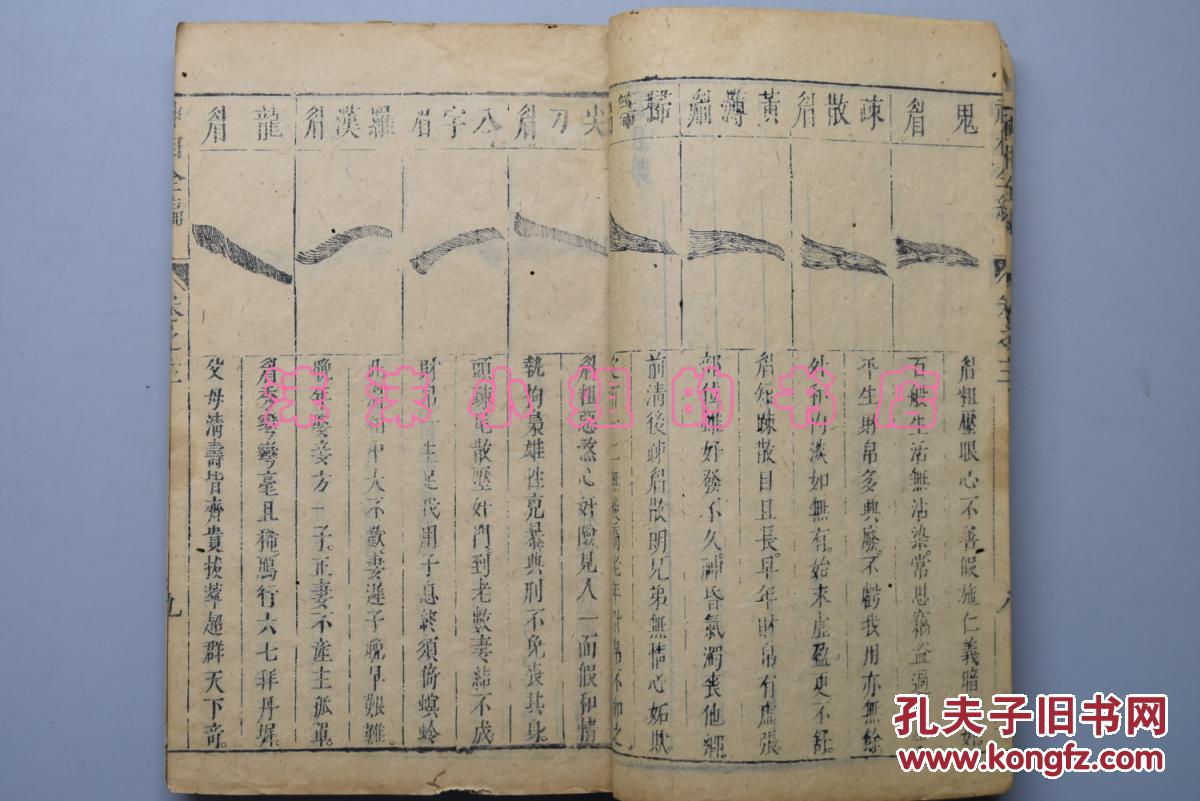 神相全編
卷之三
八
鬼眉
眉粗壓眼心不善假施仁義暗
百般生活無沾染常思竊盜過
疎散眉
平生財帛多興廢不虧我用亦無餘
外和內淡如無有始末虛盈更不舒
黃薄眉
眉短疎散目且長早年財帛有虛張
部位雖好發不久神昏氣濁喪他鄉
掃箒眉
前清後疎眉散明兄弟無情心妬欺
無 老年財帛不如之
尖刀眉
眉粗惡煞心奸險見人一面假和情
執拘梟雄性兇暴典刑不免喪其身
八字眉
頭疎尾散壓奸門到老數妻結不成
財帛 生足我用子息終須倚螟蛉
羅漢眉
中大不歡妻遲子晚早艱難
晚年娶妾方一子正妻不產主孤單
龍眉
眉秀彎彎毫且稀鴈行六七拜丹墀
父母清壽皆齊貴拔萃超群天下奇
全編
卷之三
九
沫沫小姐的书店
孔夫子旧书网
www.kongfz.com